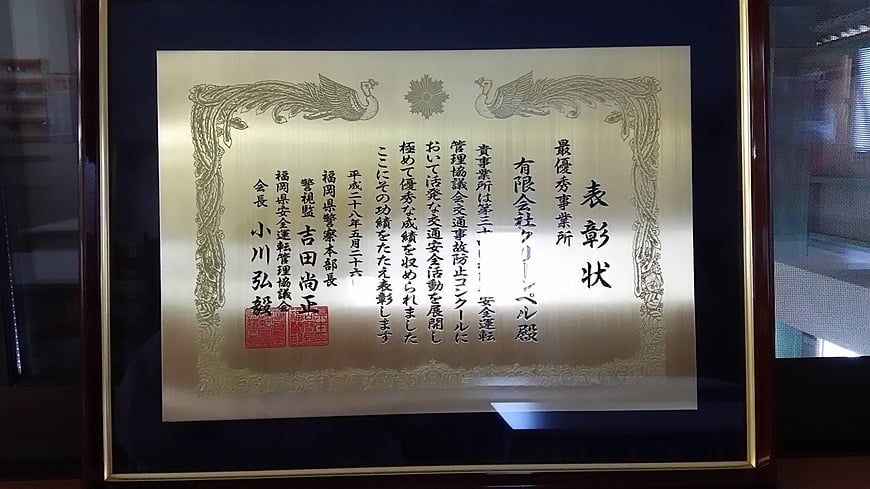 表彰状
最優秀事業所
有限会社クリーンベル殿
貴事業所は第三十 安全運転
管理協議会交通事故防止コンクールに
おいて活発な交通安全活動を展開し
極めて優秀な成績を収められました
ここにその功績をたたえ表彰します
平成二十八年五月二十六
福岡県警察本部長
警視監 吉田尚正
福岡県安全運転管理協議会
会長 小川弘毅